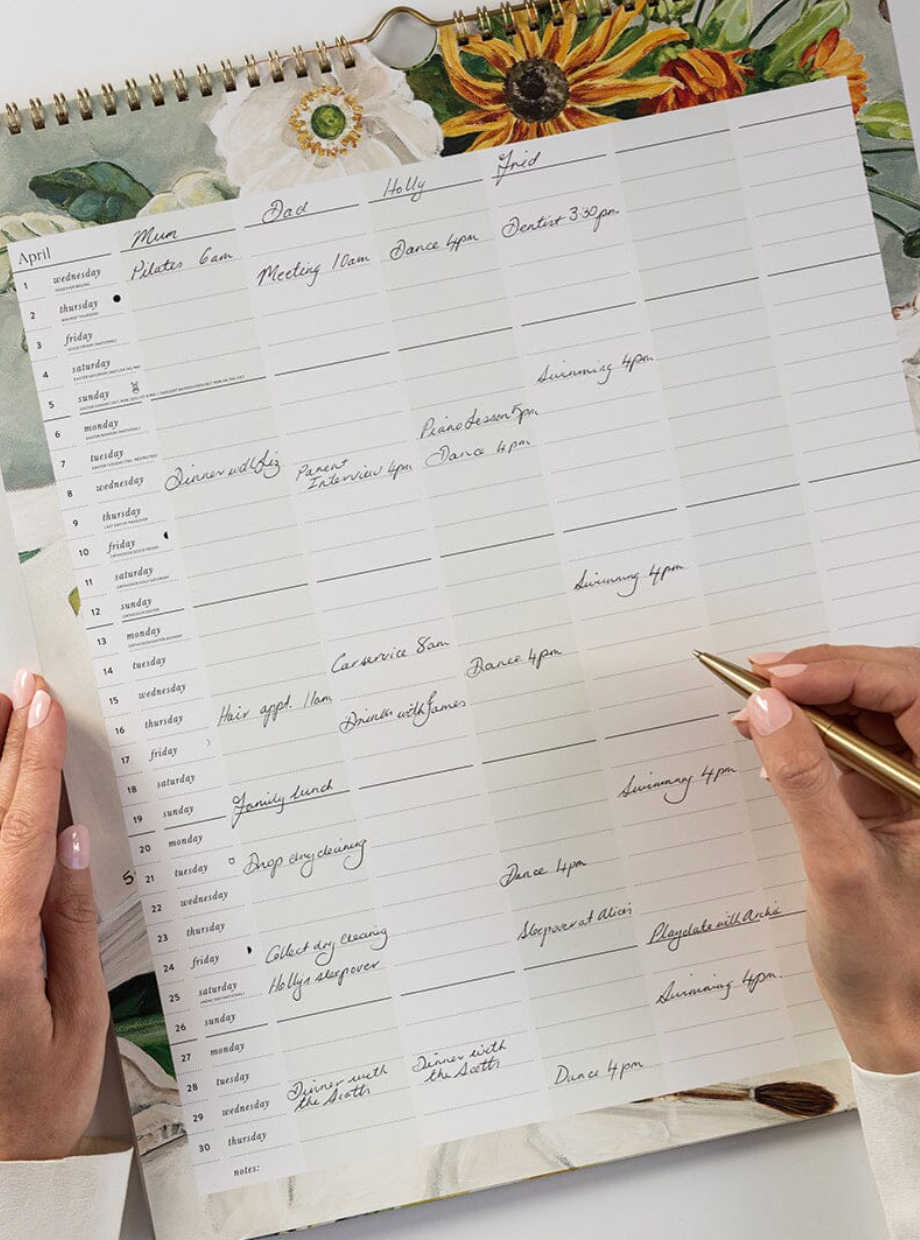 April Mum Dad Holly Fred
1 wednesday Pilates 6am Meeting 10am Dance 4pm Dentist 3:30pm
PASSOVER BEGINS
2 thursday
MAUNDY THURSDAY
3 friday
GOOD FRIDAY (NATIONAL)
4 saturday
5 sunday
6 monday
EASTER MONDAY (NATIONAL)
7 tuesday Swimming 4pm
8 wednesday Dinner with Liz Piano Lesson 5pm
9 thursday Parent Interview 4pm Dance 4pm
LAST DAY OF PASSOVER
10 friday
ORTHODOX GOOD FRIDAY
11 saturday
ORTHODOX HOLY SATURDAY
12 sunday
ORTHODOX EASTER
13 monday
ORTHODOX EASTER MONDAY
14 tuesday Swimming 4pm
15 wednesday Car service 8am
16 thursday Hair appt. 11am Dance 4pm
17 friday Drinks with James
18 saturday
19 sunday Family lunch
20 monday
21 tuesday Drop dry cleaning Swimming 4pm
22 wednesday
23 thursday Dance 4pm
24 friday Collect dry cleaning
25 saturday Hollys sleepover Sleepover at Alices
26 sunday Playdate with Archie
27 monday
28 tuesday Swimming 4pm.
29 wednesday Dinner with the Scotts Dinner with the Scotts
30 thursday Dance 4pm
notes: